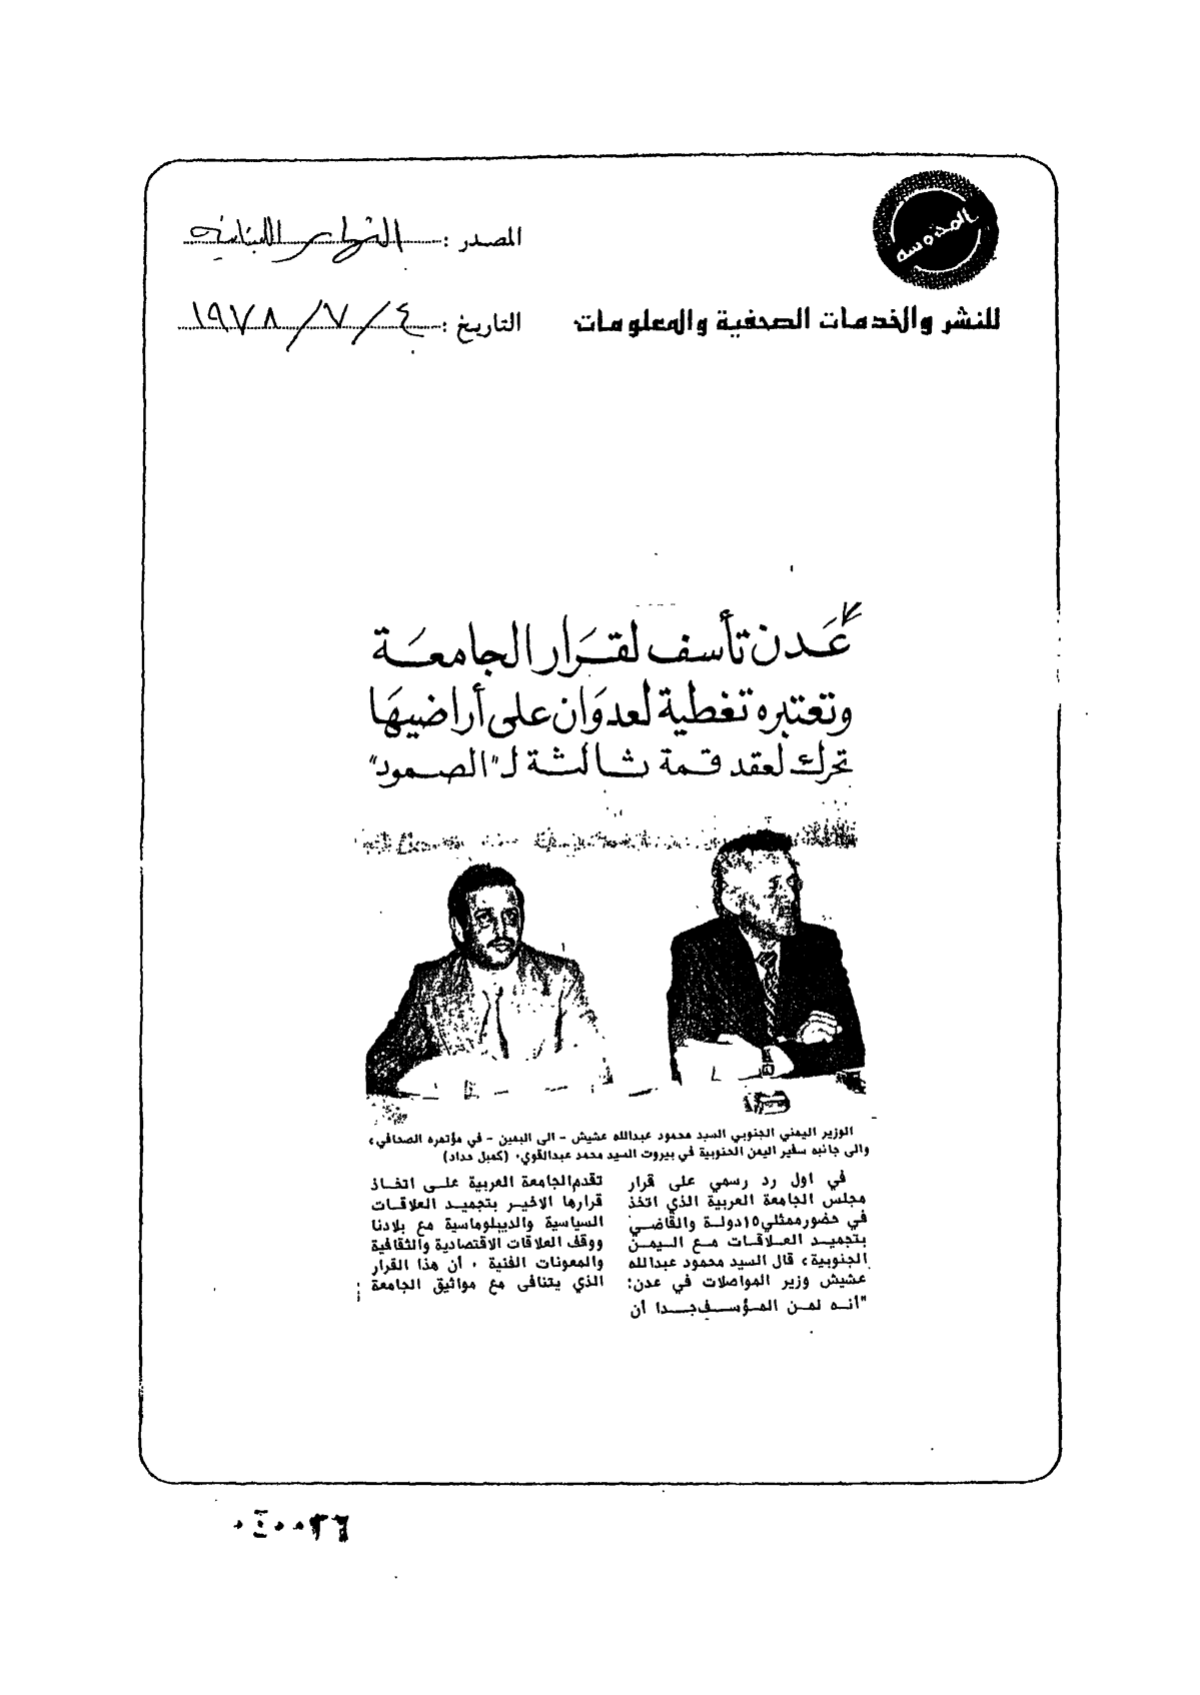 المدوسه
للنشر والخدمات الصحفية والمعلومات
المصدر : النهار اللبنانيه
التاريخ : ٤ / ٧ / ١٩٧٨
عَدن تأسف لقرار الجامعَة
وتعتبره تغطية لعدوَان على أراضيهَا
تحرك لعقد قمة ثالثة لـ"الصمود"
الوزير اليمني الجنوبي السيد محمود عبدالله عشيش - الى اليمين - في مؤتمره الصحافي،
والى جانبه سفير اليمن الجنوبية في بيروت السيد محمد عبدالقوي. (كميل حداد)
في اول رد رسمي على قرار
مجلس الجامعة العربية الذي اتخذ
في حضور ممثلي ١٥ دولة والقاضي
بتجميد العلاقات مع اليمن
الجنوبية، قال السيد محمود عبدالله
عشيش وزير المواصلات في عدن:
"أنه لمن المؤسف جدا أن
تقدم الجامعة العربية على اتخاذ
قرارها الاخير بتجميد العلاقات
السياسية والديبلوماسية مع بلادنا
ووقف العلاقات الاقتصادية والثقافية
والمعونات الفنية . أن هذا القرار
الذي يتنافى مع مواثيق الجامعة